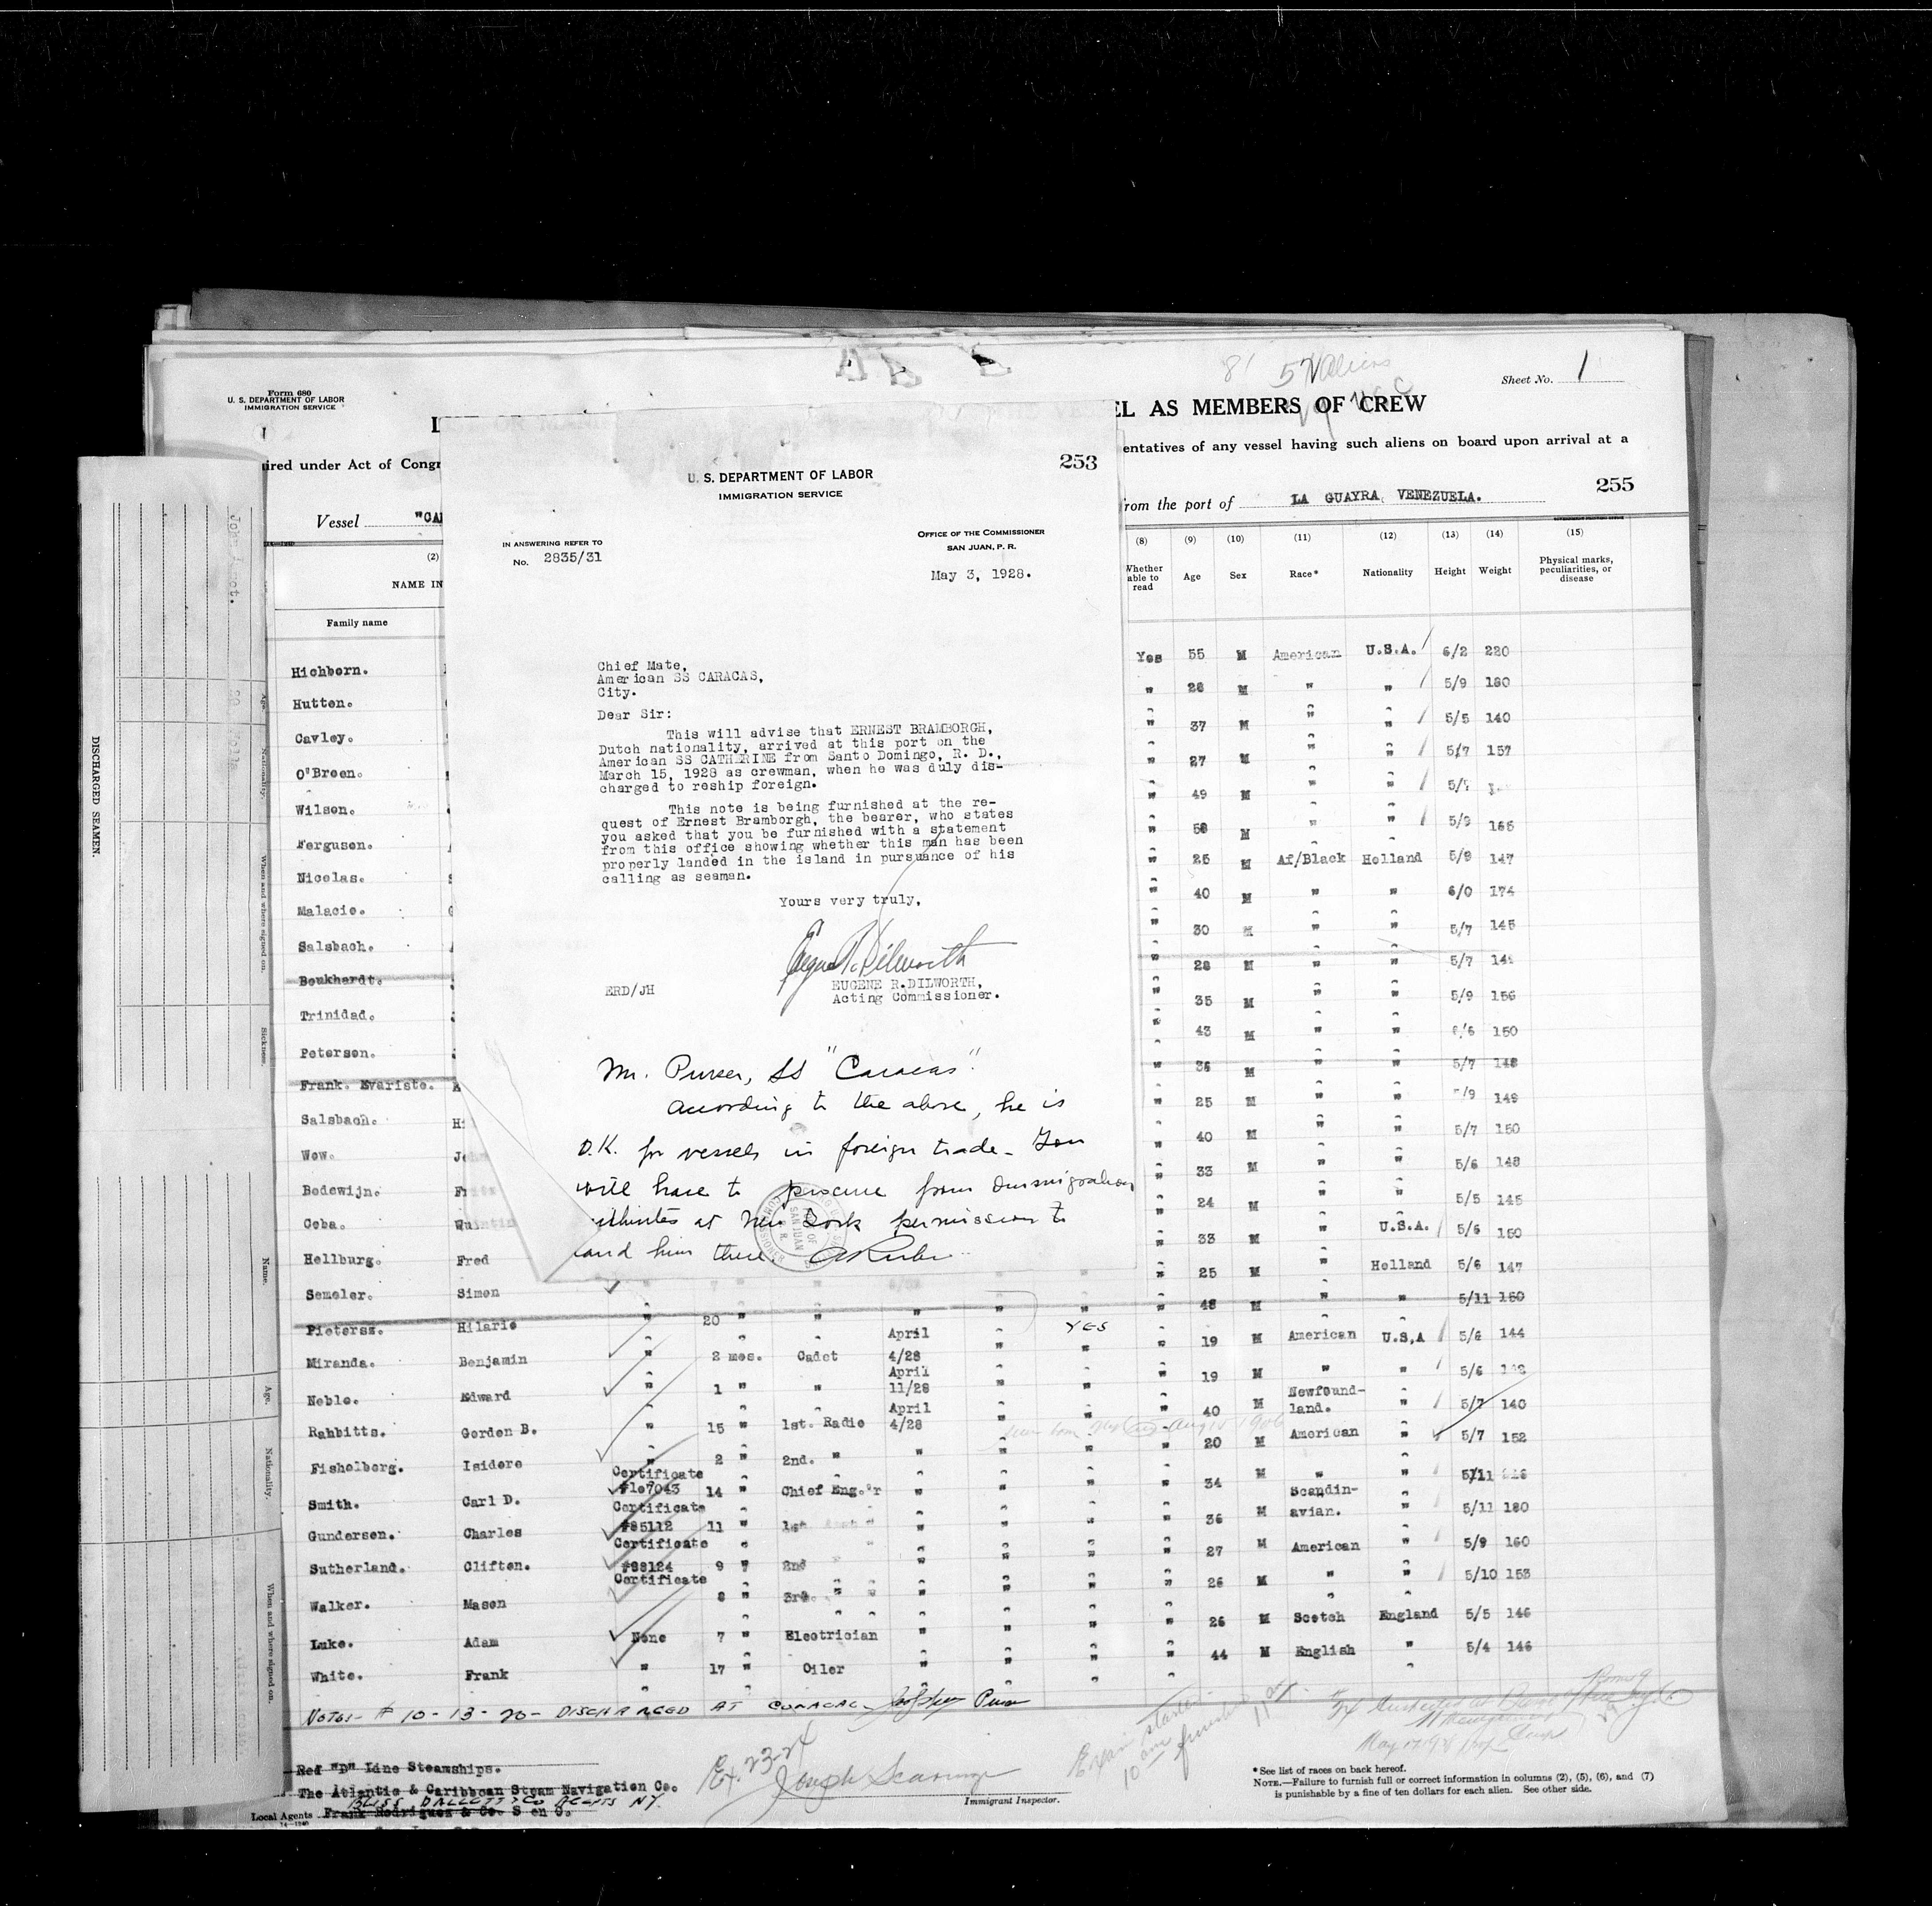 Sheet No. 1
Form 680
U. S. DEPARTMENT OF LABOR
IMMIGRATION SERVICE
EL AS MEMBERS OF CREW
ired under Act of Congr
entatives of any vessel having such aliens on board upon arrival at a
Vessel "CA
rom the port of LA GUAYRA, VENEZUELA.
255
253
U. S. DEPARTMENT OF LABOR
IMMIGRATION SERVICE
IN ANSWERING REFER TO
No. 2835/31
OFFICE OF THE COMMISSIONER
SAN JUAN, P. R.
May 3, 1928.
Chief Mate,
American SS CARACAS,
City.
Dear Sir:
This will advise that ERNEST BRAMBORGH,
Dutch nationality, arrived at this port on the
American SS CATHERINE from Santo Domingo, R. D.,
March 15, 1928 as crewman, when he was duly dis-
charged to reship foreign.
This note is being furnished at the re-
quest of Ernest Bramborgh, the bearer, who states
you asked that you be furnished with a statement
from this office showing whether this man has been
properly landed in the island in pursuance of his
calling as seaman.
Yours very truly,
EUGENE R. DILWORTH,
Acting Commissioner.
ERD/JH
Mr. Purser, SS "Caracas".
According to the above, he is
O.K. for vessels in foreign trade. You
will have to procure from Immigration
at New York permission to
land him there.
(2)
NAME IN
Family name
(8) (9) (10) (11) (12) (13) (14) (15)
Whether able to read Age Sex Race* Nationality Height Weight Physical marks, peculiarities, or disease
Hichborn. Yes 55 M American U.S.A. 6/2 220
Hutton. " 28 M " " 5/9 180
Cavley. " 37 M " " 5/5 140
O'Breen. " 27 M " " 5/7 157
Wilson. " 49 M " " 5/
Ferguson. " 58 M " " 5/9 165
Nicolas. " 25 M Af/Black Holland 5/8 147
Malacio. " 40 M " " 6/0 174
Salsbach. " 30 M " " 5/7 145
Boukhardt. " 28 M " " 5/7
Trinidad. " 35 M " " 5/9 156
Peterson. " 43 M " " 150
Frank. Evariste. " 36 M " " 5/7 148
Salsbach. " 25 M " " 5/9 149
Wow. " 40 M " " 5/7 150
Bodewijn. " 33 M " " 5/6 148
Coba. Quintin " 24 M " " 5/5 145
Hellburg. Fred " 33 M " U.S.A. 5/6 150
Semeler. Simon " 25 M " Holland 5/6 147
Pietersz. Hilario " 20 " " " " " " 48 M " " 5/11 160
Miranda. Benjamin " 2 mos. Cadet April 4/28 " YES " 19 M American U.S.A 5/6 144
Noble. Edward " 1 " " April 11/28 " " " 19 M " " 5/6
Rabbitts. Gordon B. " 15 " 1st. Radio April 4/28 " " " 40 M Newfound-land. " 5/7 140
Fishelberg. Isidore " 2 " 2nd. " " " " " 20 M American " 5/7 152
Smith. Carl D. Certificate #107043 14 " Chief Eng.'r " " " " 34 M " " 5/11
Gundersen. Charles Certificate #85112 11 " 1st " " " " 36 M Scandin-avian. " 5/11 180
Sutherland. Clifton. Certificate #88124 9 " 2nd " " " " 27 M American " 5/9 160
Walker. Mason Certificate 8 " 3rd. " " " " " 26 M " " 5/10 153
Luke. Adam None 7 " Electrician " " " " 26 M Scotch England 5/5 146
White. Frank " 17 " Oiler " " " " 44 M English " 5/4 146
NOTE:- # 10 - 13 - 20 - DISCHARGED AT CURACAO. Purser
Red "D" Line Steamships.
The Atlantic & Caribbean Steam Navigation Co.
BLISS DALLETT & CO AGENTS N.Y.
Local Agents Frank Rodriguez & Co. S en C.
14—1240
Ex. 23-24
Immigrant Inspector.
Exam started
10 am finished
* See list of races on back hereof.
NOTE.—Failure to furnish full or correct information in columns (2), (5), (6), and (7)
is punishable by a fine of ten dollars for each alien. See other side.
DISCHARGED SEAMEN.
Age.
Nationality.
When and where signed on.
Sickness.
Name.
Age.
Nationality.
When and where signed on.